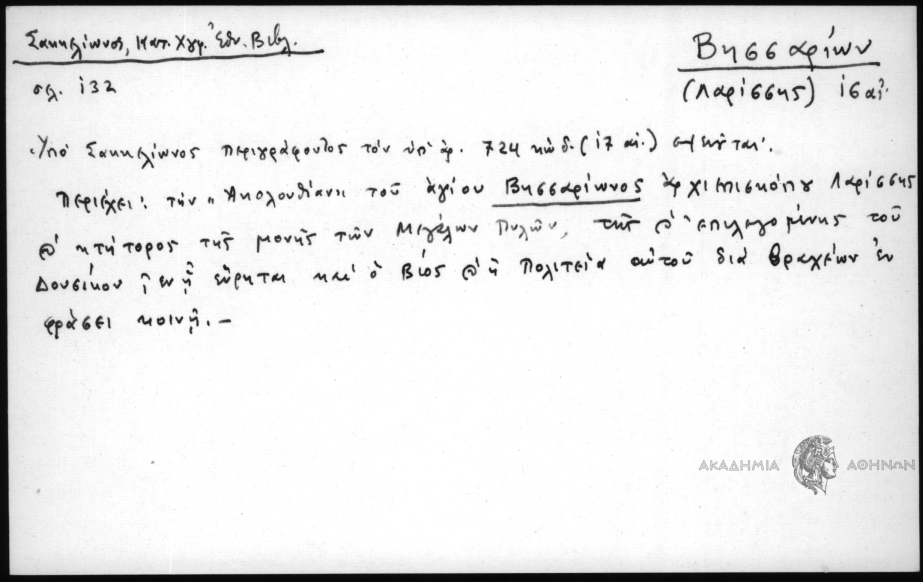 Σακκελίωνος, Κατ. Χγφ. Ἐθν. Βιβλ.
Βησσαρίων
(Λαρίσσης) ις αἰ.
σελ. 132
Ὑπὸ Σακκελίωνος περιγράφοντος τὸν ὑπ' ἀρ. 724 κώδ. (17 αἰ.) σημειοῦται·
Περιέχει: τὴν „Ἀκολουθίαν" τοῦ ἁγίου Βησσαρίωνος ἀρχιεπισκόπου Λαρίσσης
κτήτορος τῆς μονῆς τῶν Μεγάλων Πυλῶν, τῆς ἐπιλεγομένης τοῦ
Δουσίκου, ἐν ᾗ εὕρηται καὶ ὁ Βίος ἡ Πολιτεία αὐτοῦ διὰ βραχέων ἐν
φράσει κοινῇ. –
ΑΚΑΔΗΜΙΑ ΑΘΗΝΩΝ